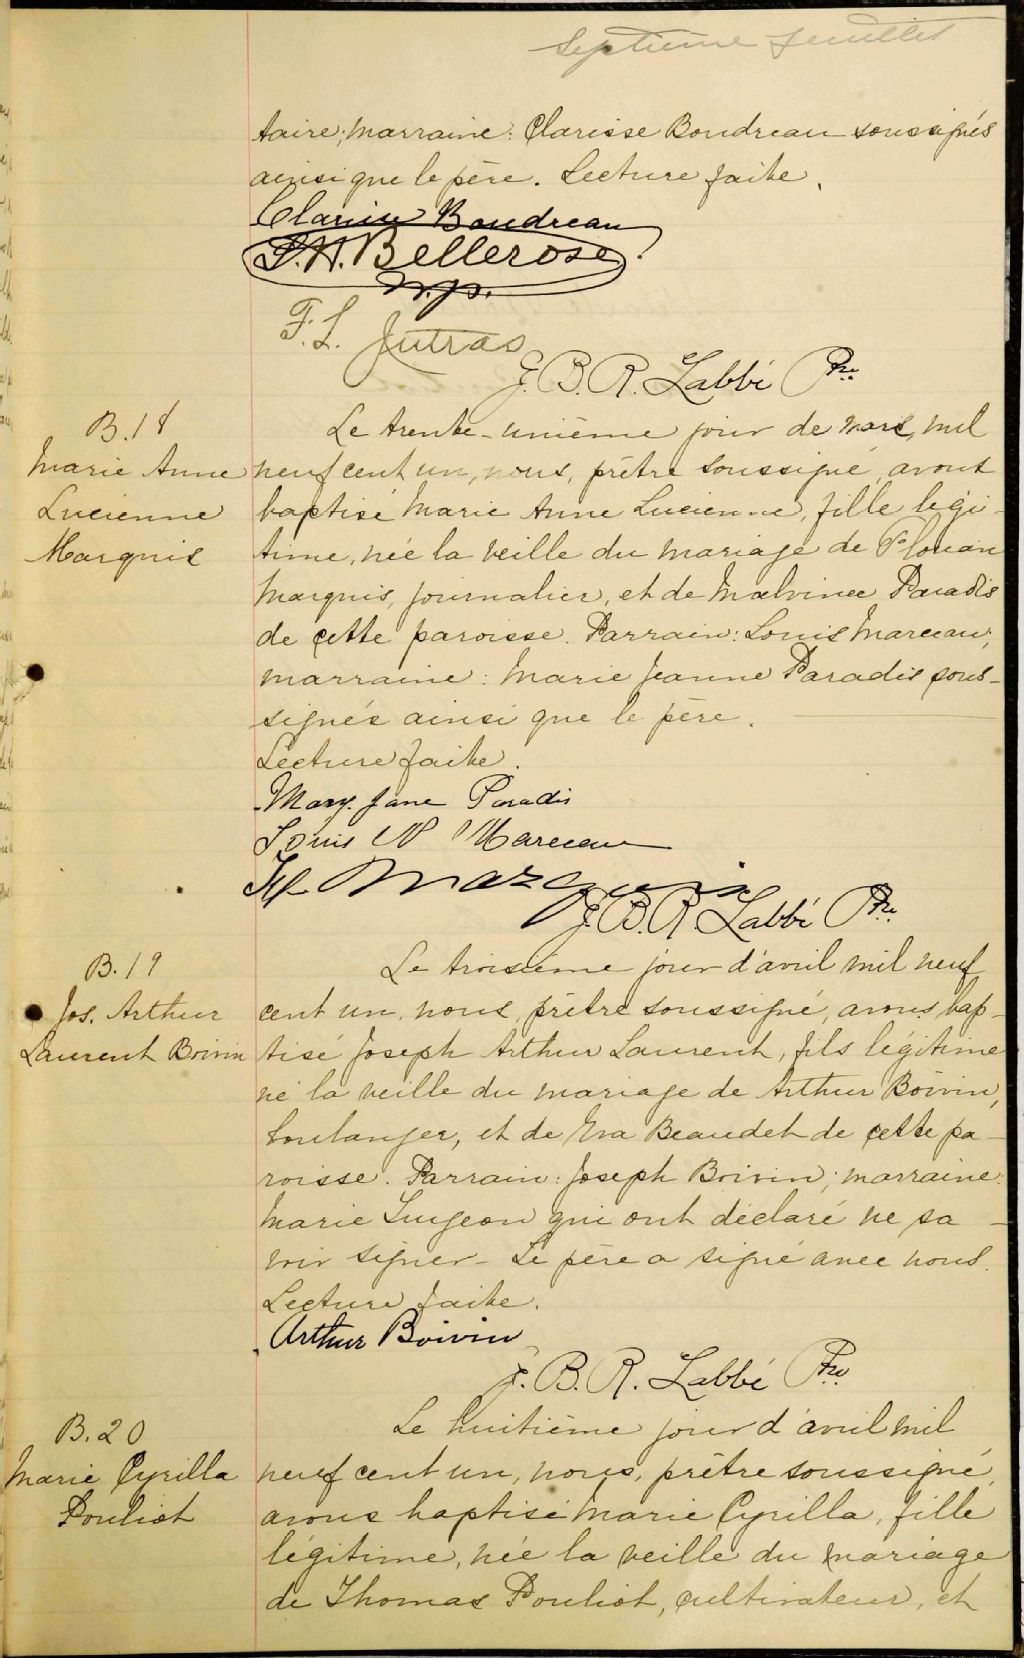 Septième feuillet
taire; marraine: Clarisse Boudreau soussignés
ainsi que le père. Lecture faite.
Clarisse Boudreau
J.H. Bellerose
N.P.
F.L. Jutras
J.B.R. Labbé Ptre
B.18
Marie Anne
Lucienne
Marquis
Le trente-unième jour de mars, mil
neuf cent un, nous, prêtre soussigné, avons
baptisé Marie Anne Lucienne, fille légi-
time, née la veille du mariage de
Marquis, journalier, et de Malvinea Paradis
de cette paroisse. Parrain: Louis Marceau;
marraine: Marie Jeanne Paradis sous-
signés ainsi que le père.
Lecture faite.
Mary Jane Paradis
Louis N Marceau
Marquis
J.B.R. Labbé Ptre
B.19
Jos. Arthur
Laurent Boivin
Le troisième jour d'avril mil neuf
cent un, nous, prêtre soussigné, avons bap-
tisé Joseph Arthur Laurent, fils légitime
né la veille du mariage de Arthur Boivin,
boulanger, et de Eva Beaudet de cette pa-
roisse. Parrain: Joseph Boivin; marraine:
Marie Turgeon qui ont déclaré ne sa-
voir signer- Le père a signé avec nous.
Lecture faite.
Arthur Boivin
J.B.R. Labbé Ptre
B.20
Marie Cyrilla
Pouliot
Le huitième jour d'avril mil
neuf cent un, nous, prêtre soussigné,
avons baptisé Marie Cyrilla, fille
légitime, née la veille du mariage
de Thomas Pouliot, cultivateur, et